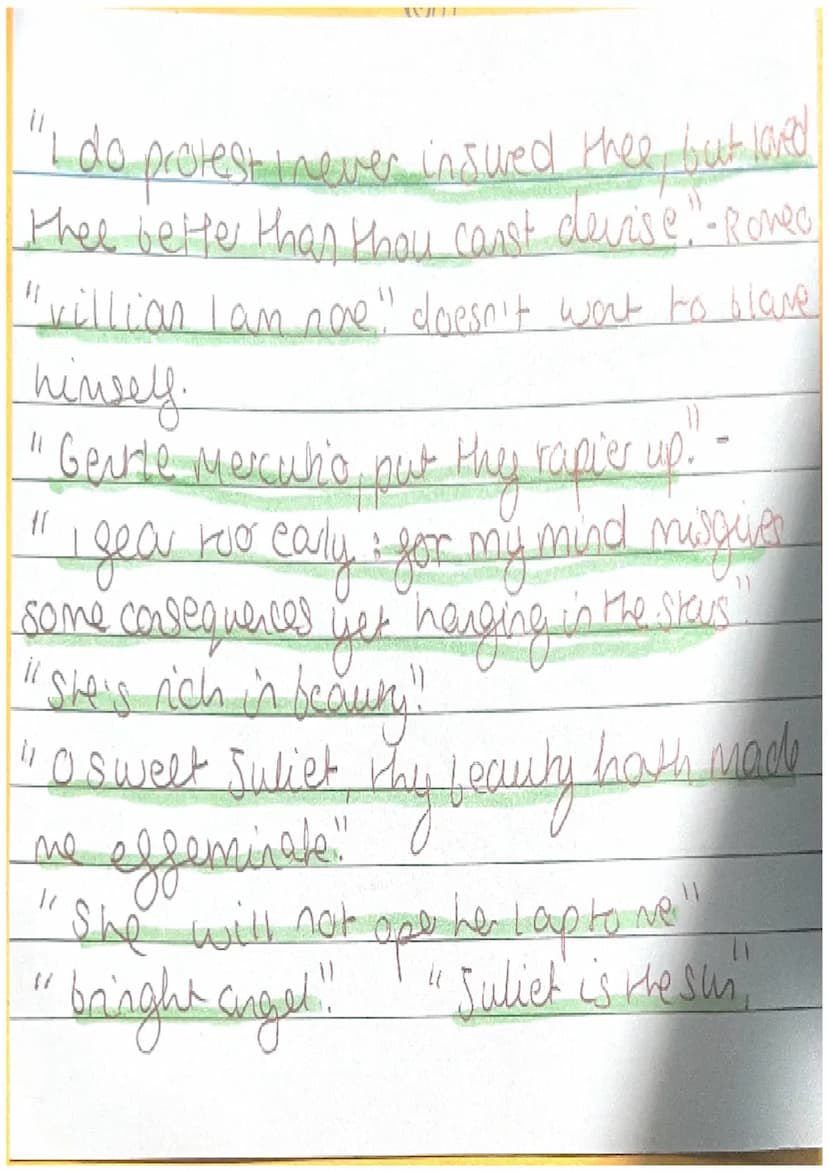 "I do protest I never injured thee, but loved
thee better than thou canst devise." - Romeo
"villian I am noe." doesn't want to blame
himself.
"Gentle Mercutio, put thy rapier up." -
"I fear too early: for my mind misgives
some consequences yet hanging in the stars".
"She's rich in beauty"
"O sweet Juliet, thy beauty hath made
me effeminate."
"She will not ope her lap to me"
"bright angel". "Juliet is the sun",